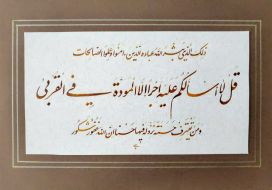 ذلك الذي يبشر الله عباده الذين آمنوا وعملوا الصالحات
قل لا أسألكم عليه أجرا إلا المودة في القربى
ومن يقترف حسنة نزد له فيها حسنا إن الله غفور شكور